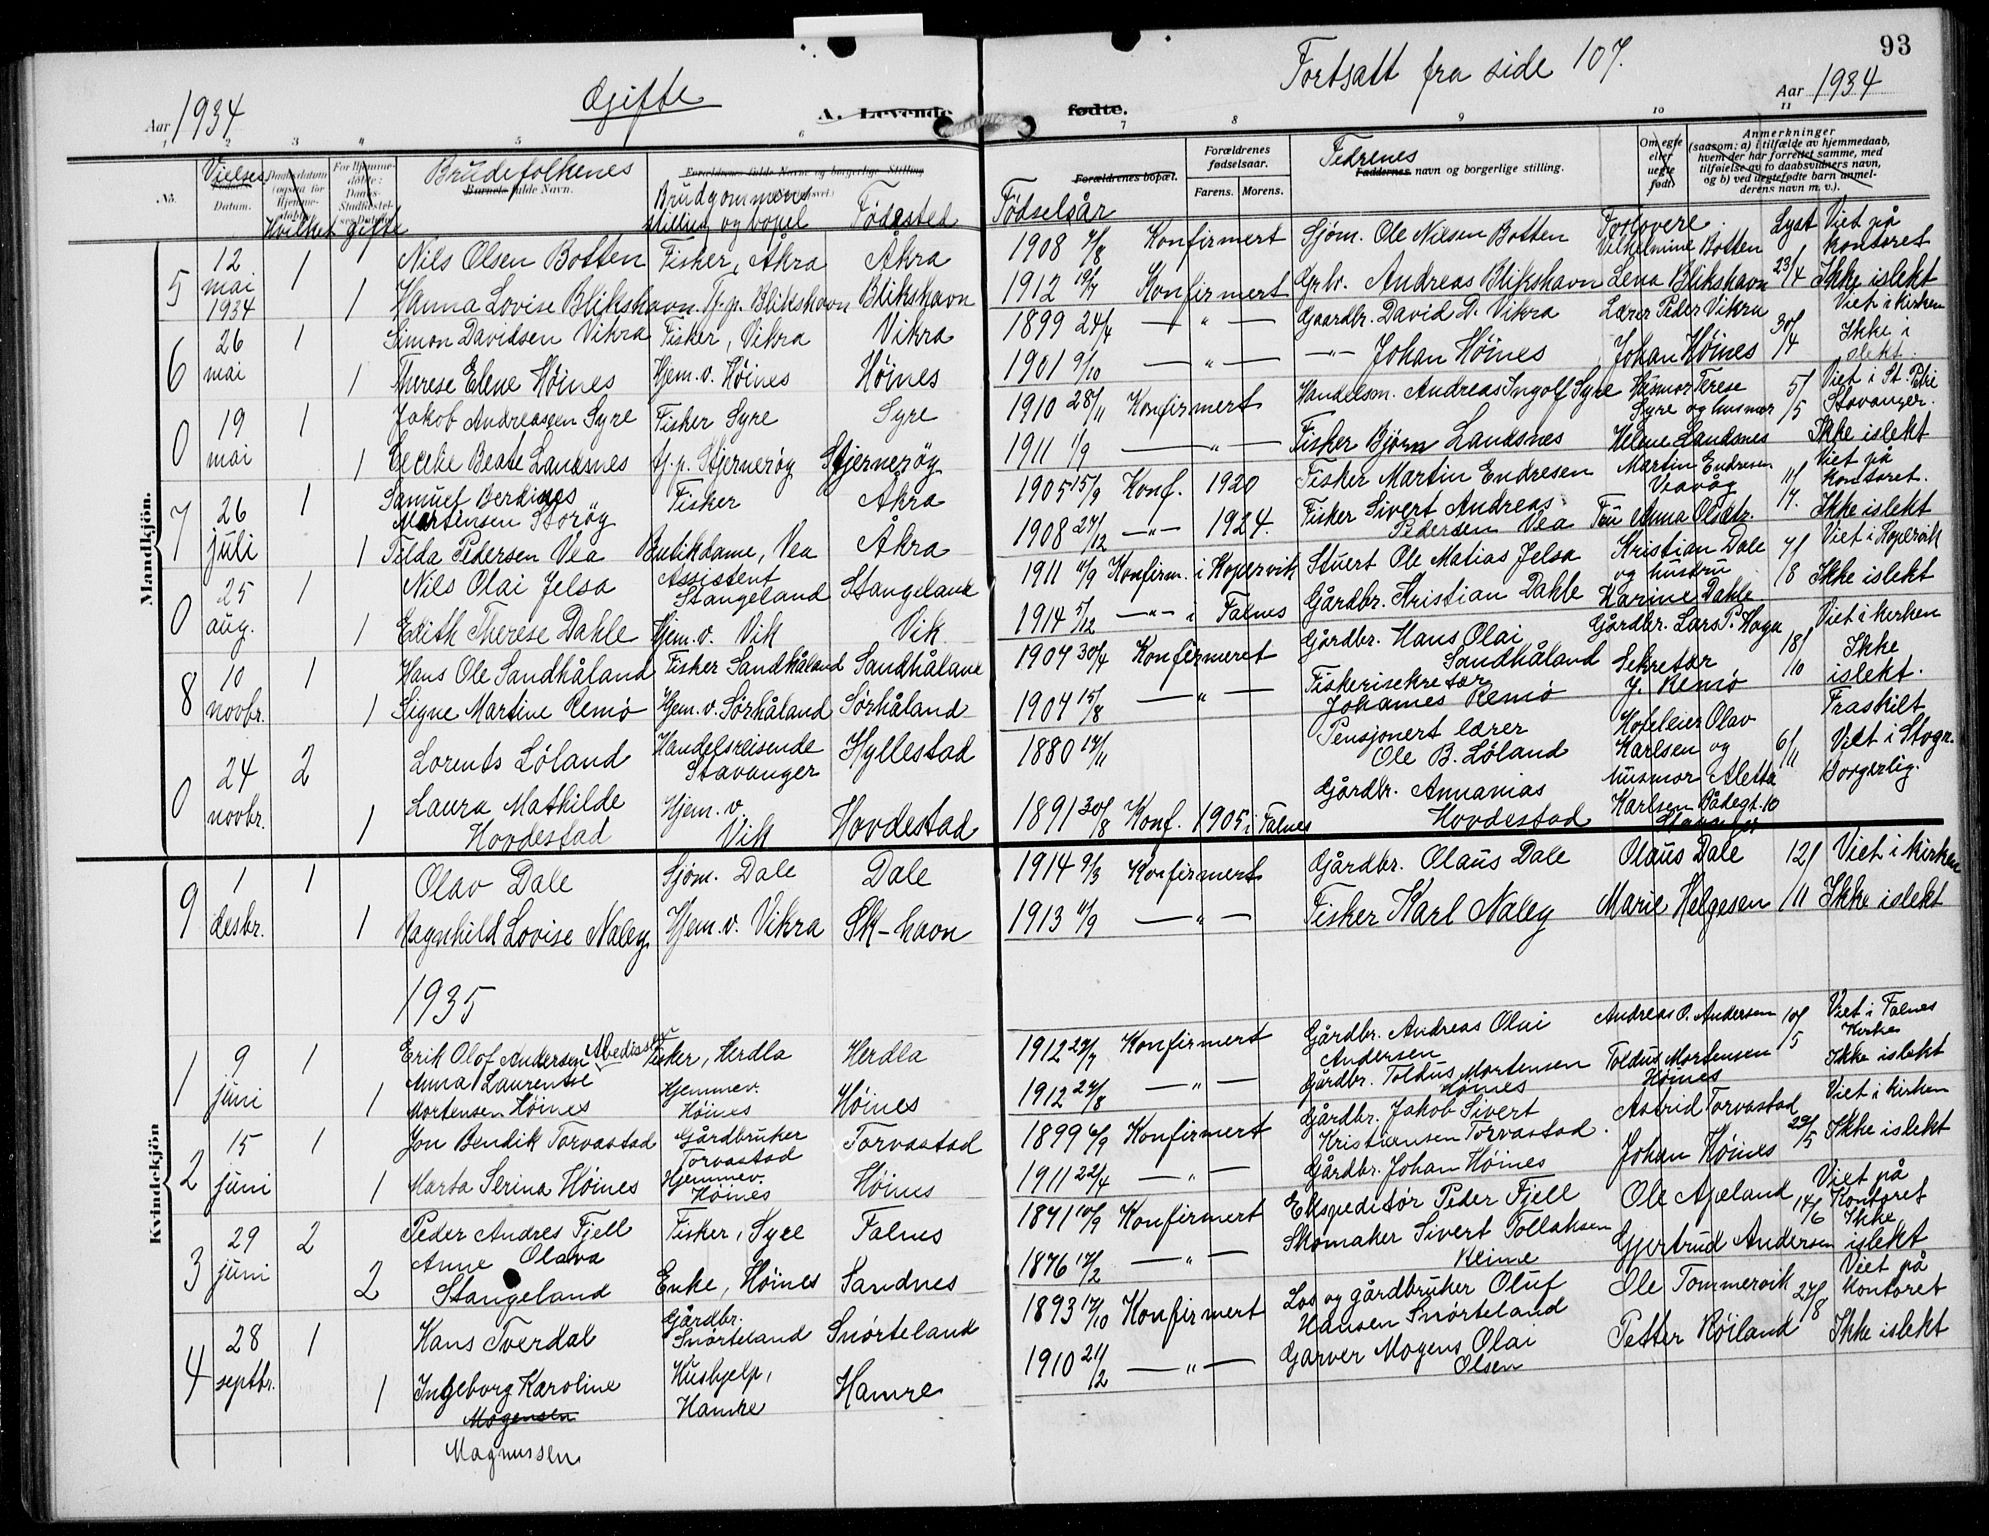 93
Aar 1934
Ogifte
A. Levende
fødte.
Fortsatt fra side 107.
Aar 1934
1 2 3 4 5 6 7 8 9 10 11
No.
Vielses Datum.
Hvilket gifte
Brudefolkenes
Barnets fulde Navn.
Brudgommens stilling og bopel
Fødested
Forældrenes bopæl.
Fødselsår
Forældrenes fødselsaar.
Farens. Morens.
Fedrenes
Faddernes navn og borgerlige stilling.
Om egte eller uegte født.
Anmerkninger
(saasom: a) i tilfælde av hjemmedaab, hvem der har forrettet samme, med tilføielse av to daabsvidners navn, og b) ved uegtefødte barn anmelderens navn m. v.).
Forlovere
Lyst
Mandkjön.
5 12 mai 1934 1 Nils Olsen Botten Fisker, Åkra Åkra 1908 4/8 Konfirmert Sjøm. Ole Nilsen Botten Vilhelmine Botten Viet på kontoret
1 Hanna Lovise Blikshavn Blikshavn Blikshavn 1912 19/7 Konfirmert Andreas Blikshavn Lena Blikshavn 23/4 Ikke islekt
6 26 mai 1 Simon Davidsen Vikra Fisker, Vikra Vikra 1899 24/4 — " — Gaardbr. David D. Vikra Lærer Peder Vikra Viet i kirken
1 Therese Elene Høines Hjem.v. Høines Høines 1901 9/10 — " — —"— Johan Høines Johan Høines 30/4 Ikke i slekt.
0 19 mai 1 Jakob Andreassen Syre Fisker Syre Syre 1910 28/11 Konfirmert Handelsm. Andreas Ingolf Syre Husmor Terese Syre og husmor 5/5 Viet i St. Petri Stavanger.
1 Cecelie Beate Landsnes Stjernerøy Stjernerøy 1911 1/9 — " — Fisker Bjørn Landsnes Helene Landsnes Ikke islekt
7 26 juli 1 Samuel Berdines Mortensen Storøy Fisker Åkra 1905 15/9 Konf. 1920 Fisker Martin Endresen Martin Endresen Veavåg 11/7. Viet på kontoret.
1 Tilda Pedersen Vea Butikdame, Vea Åkra 1908 27/12 —"— 1924. Fisker Sivert Andreas Pedersen Vea Anna Olsdtr. Ikke islekt
0 25 aug. 1 Nils Olai Jelsa Assistent Stangeland Stangeland 1911 11/9 Konfirm. i Kopervik Stuert Ole Matias Jelsa Kristian Dale og hustru 7/8 Viet i Kopervik
1 Edith Therese Dahle Hjem.v. Vik Vik 1914 5/12 —"— i Falnes Gårdbr. Kristian Dahle Karine Dahle Ikke islekt
8 10 novbr. 1 Hans Ole Sandhåland Fisker Sandhåland Sandhåland 1904 30/4 Konfirmeret Gårdbr. Hans Olai Sandhåland Gårdbr. Lars P. Haga 18/10 Viet i kirken
1 Signe Martine Remø Hjem.v. Sørhåland Sørhåland 1904 15/8 — " — Fiskerisekretær Johannes Remø Sekretær J. Remø Ikke islekt.
0 24 novbr. 2 Lorents Løland Handelsreisende Stavanger Hyllestad 1880 17/11 Pensjonert lærer Ole B. Løland Hoteleier Olav Karlsen og 6/11 Fraskilt Viet i Stvgr.
1 Laura Mathilde Hovdestad Hjem.v. Vik Hovdestad 1891 30/8 Konf. 1905 i Falnes Gårdbr. Annanias Hovdestad husmor Aletta Karlsen Borgerlig.
9 1 desbr. 1 Olav Dale Sjøm. Dale Dale 1914 9/3 Konfirmert Gårdbr. Olaus Dale Olaus Dale 12/11 Viet i kirken
1 Ragnhild Lovise Naley Hjem.v. Vikra Sk-havn 1913 11/9 — " — Fisker Karl Naley Marie Helgesen Ikke islekt
1935
Kvindekjön
1 9 juni 1 Erik Olof Andersen Abedissen Fisker, Herdla Herdla 1912 29/7 Konfirmert Gårdbr. Andreas Olai Andersen Andreas O. Andersen 10/5 Viet i Falnes Kirke
1 Anna Laurentse Mortensen Høines Hjemmev. Høines Høines 1912 27/8 — " — Gårdbr. Toldus Mortensen Høines Toldus Mortensen Høines Ikke islekt
2 15 juni 1 Jon Bendik Torvastad Gårdbruker Torvastad Torvastad 1899 6/9 Konfirmert Gårdbr. Jakob Sivert Kristiansen Torvastad. Astrid Torvastad 22/5 Viet i kirken
1 Marta Serina Høines Hjemmev. Høines Høines 1911 22/4 — " — Gårdbr. Johan Høines Johan Høines Ikke islekt
3 29 juni 2 Peder Andres Fjell Fisker, Syre Falnes 1871 10/9 Konfirmert Ekspeditør Peder Fjell Ole Apeland 14/6 Viet på Kontoret
2 Anne Olava Stangeland Enke, Høines Sandnes 1876 17/2 — " — Skomaker Sivert Tollaksen Kleine Gjertrud Andersen Ikke islekt
4 28 septbr. 1 Hans Tverdal Gårdbr. Snørteland Snørteland 1893 17/10 Konfirmert Los og gårdbruker Oluf Hansen Snørteland Ole Tommervik 27/8 Viet på kontoret
1 Ingeborg Karoline Mogensen Magnussen Hushjelp, Hamre Hamre 1910 21/12 — " — Garver Mogens Olai Olsen Petter Røiland Ikke islekt